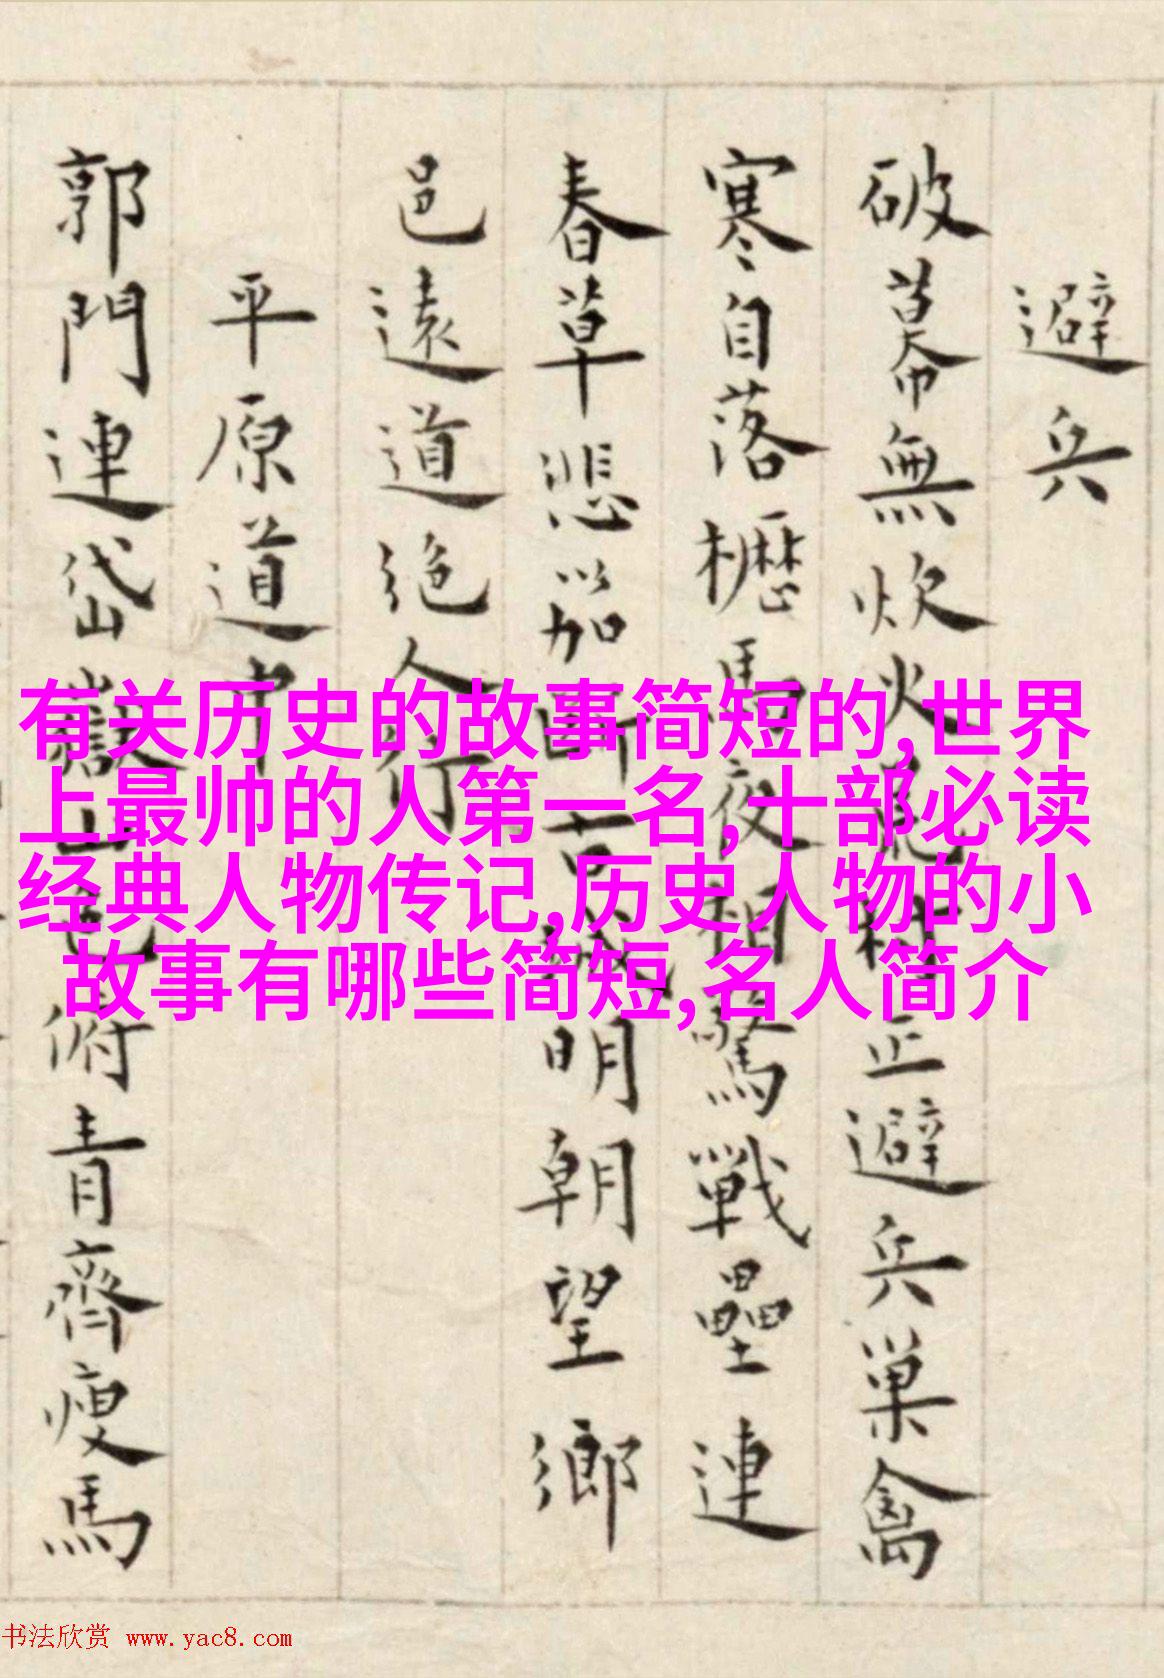 避兵
破幕無炊火荒村正避兵巢禽
寒自落櫪馬夜相驚戰壘連
春草悲笳斷古城明朝望鄉
邑遠道絶人行
平原道中
郭門連岱嶽山色俯青齊瘦馬
有关历史的故事简短的,世界
上最帅的人第一名,十部必读
经典人物传记,历史人物的小
故事有哪些简短,名人简介
书法欣赏 www.yac8.com